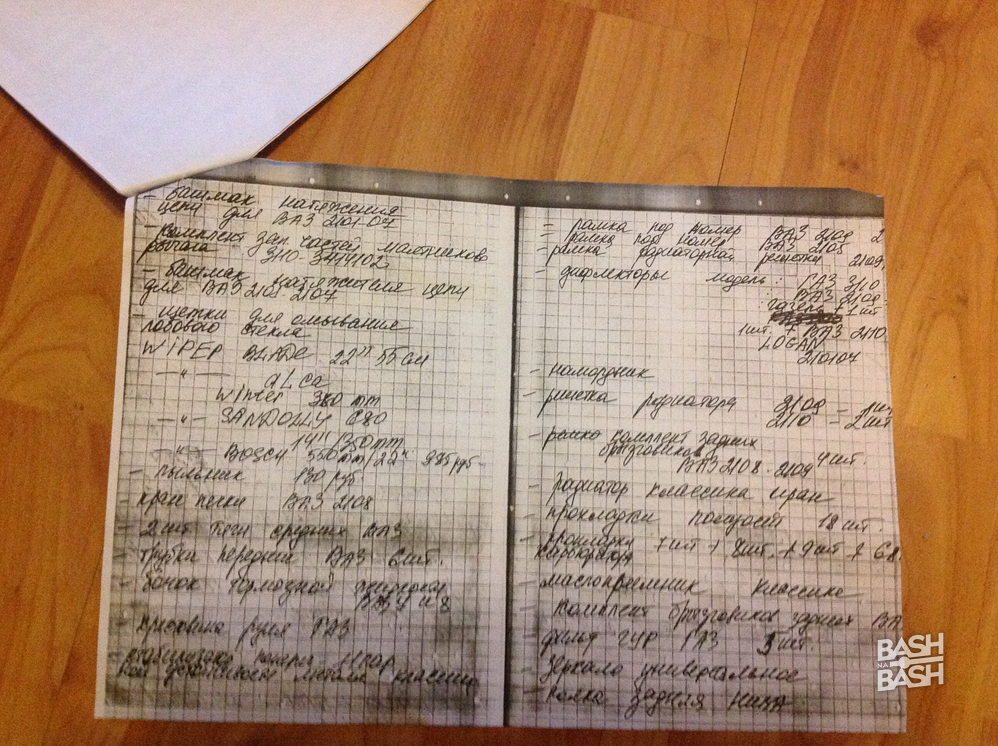 - башмак натяжения
цепи для ВАЗ 2101-07
- комплект зап. частей маятникова
рычага 3110-3414102
- башмак натяжителя цепи
для ВАЗ 2101-2107
- щетки для омывания
лобового стекла
WIPER BLADE 22" 55см
—"— ALCA
Winter 380 mm
—"— SANDOLLY 680
14" / 350mm
—"— BOSCH 550mm/22"
- пыльник 130 руб
кран печки ВАЗ 2108
- 2 шт тяги средних ВАЗ
- трубки передние ВАЗ 6 шт.
- бочок тормозной
ВАЗ
- руля ГАЗ
классика
- рамка под номер ВАЗ 2109 2
- рамка под номер ВАЗ 2105
- рамка радиаторной решетки 2109,
- дифлекторы модель: ГАЗ 3110
: ВАЗ 2109
: газель + 1 шт
1 шт. + ВАЗ 2110
LOGAN
210104
- намордник
- решетка радиатора 2109 - 1 шт
2110 - 2 шт
- комплект задних
брызговиков 4 шт.
ВАЗ 2108-2109
- радиатор классика иран
- прокладки 18 шт.
- прокладки 7 шт + 8 шт. + 9 шт + 68
карбюратора
- маслоприемник классика
- комплект брызговиков задних ВА
- фильт ГУР ГАЗ 3 шт.
- зеркало универсальное
- полка задняя НИВА
BASH
НА
BASH